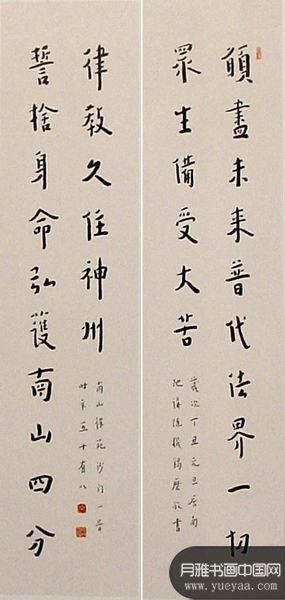 願盡未来普代法界一切
眾生備受大苦
歲次丁丑元旦南
陀講随機羯磨敬書
誓捨身命弘護南山四分
律教久住神州
南山律苑沙门一音
时年五十有八
月雅书画中国网
www.yueyaa.com